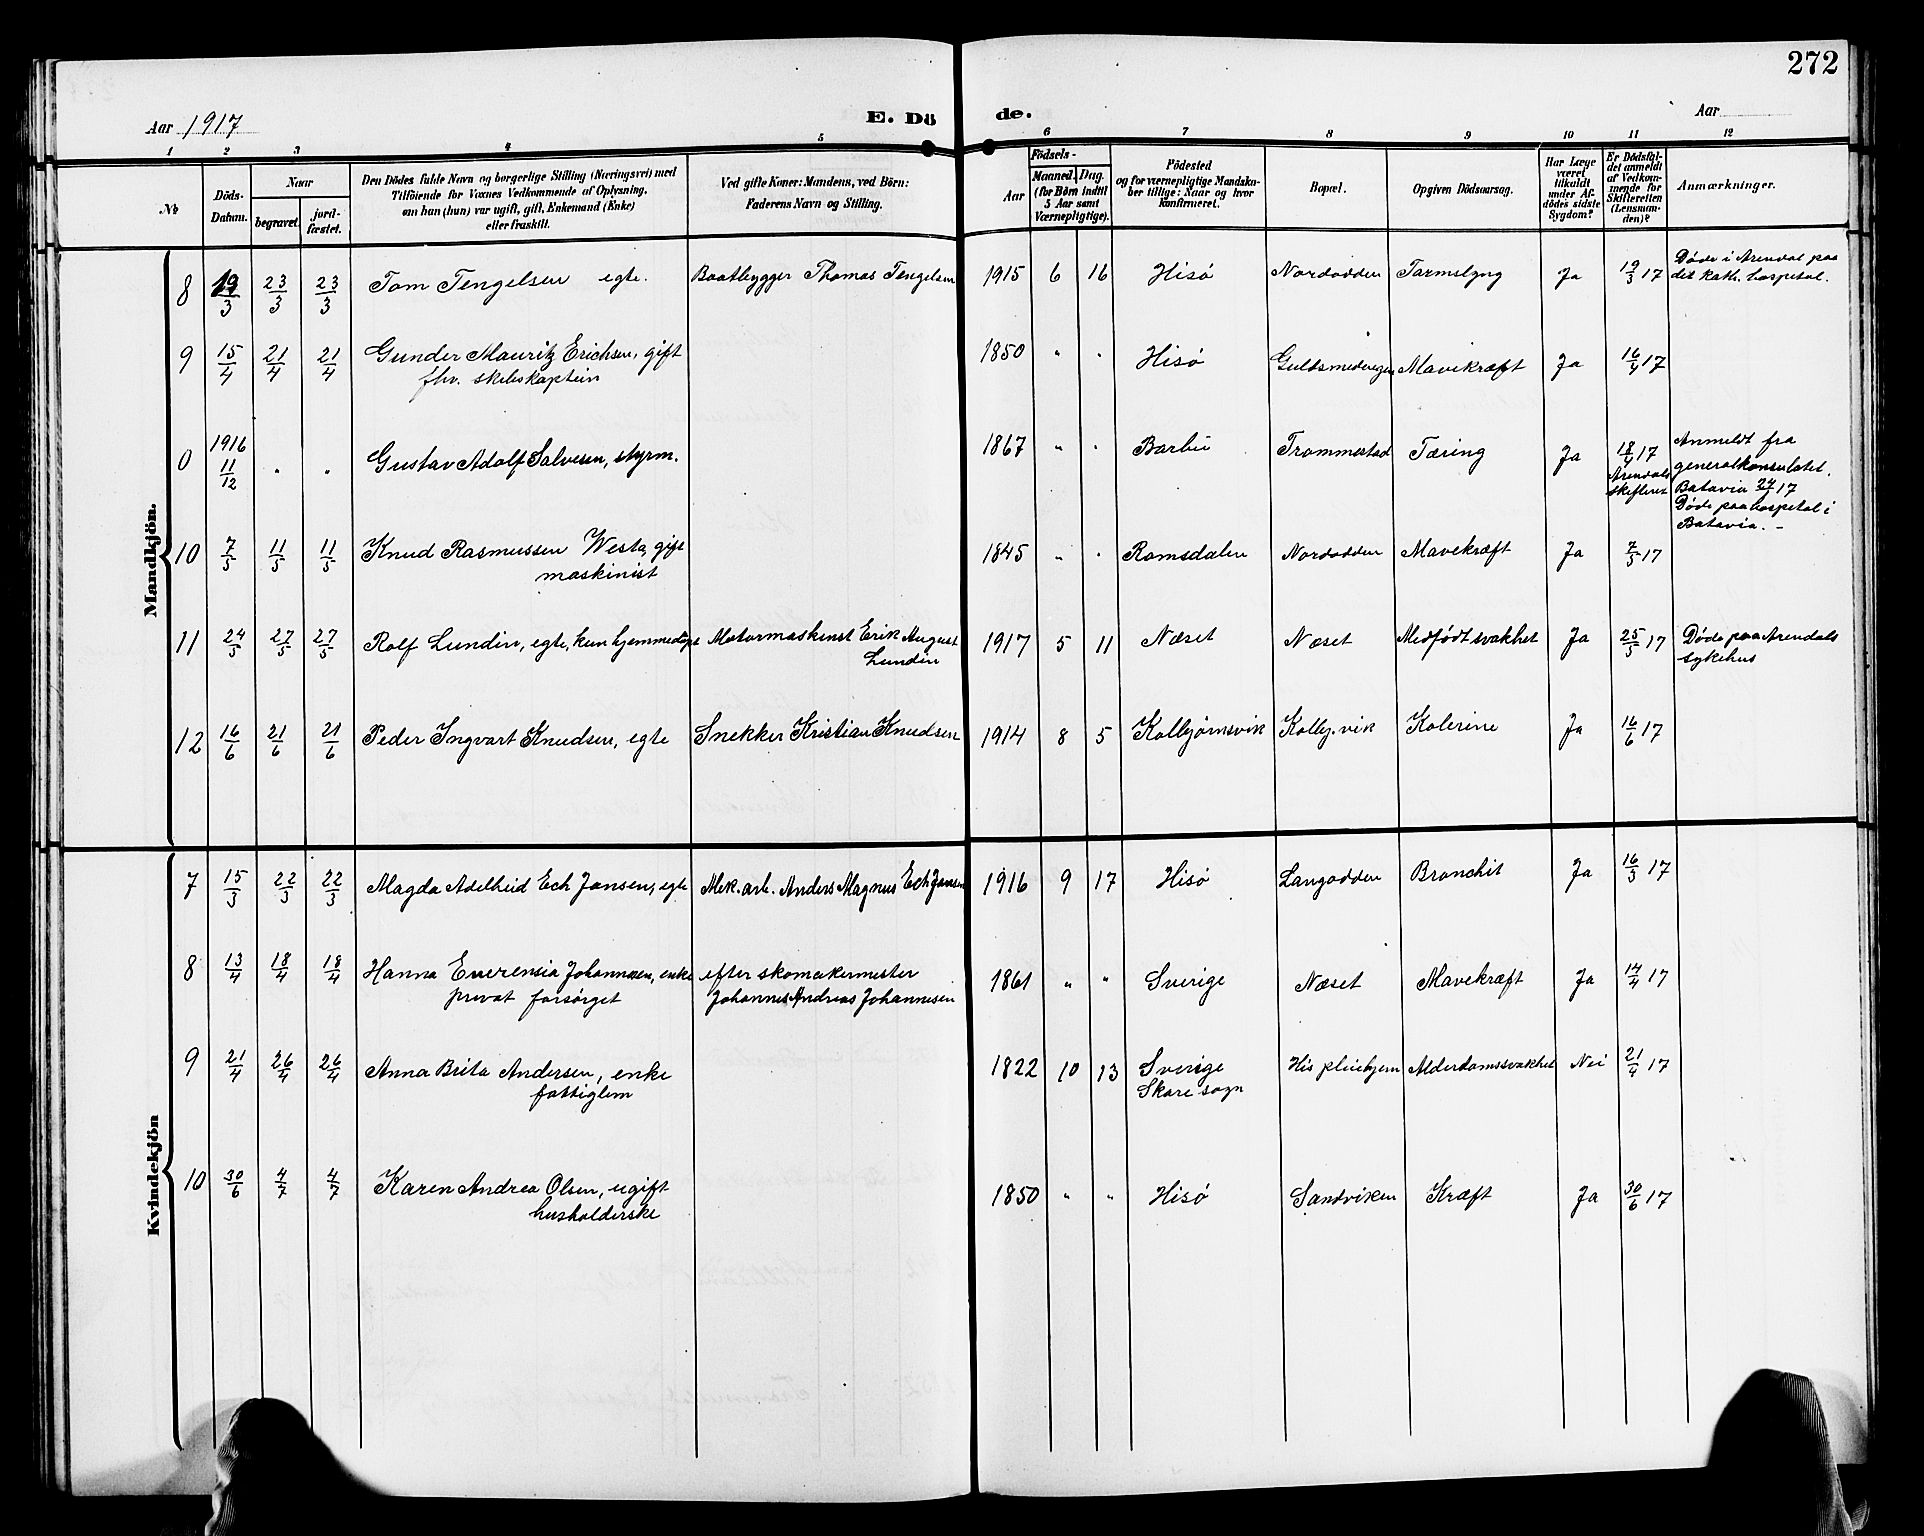 272
Aar 1917
E. Dö de.
Aar
1 2 3 4 5 6 7 8 9 10 11 12
№
Döds-Datum.
Naar
begravet.
jord-fæstet.
Den Dödes fulde Navn og borgerlige Stilling (Næringsvei) med
Tilföiende for Voxnes Vedkommende af Oplysning,
om han (hun) var ugift, gift, Enkemand (Enke)
eller fraskilt.
Ved gifte Koner: Mandens, ved Börn:
Faderens Navn og Stilling.
Födsels-
Aar
Maaned. Dag.
(for Börn indtil
5 Aar samt
Værnepligtige).
Födested
og for værnepligtige Mandska-
ber tillige: Naar og hvor
konfirmeret.
Bopæl.
Opgiven Dödsaarsag.
Har Læge
været
tilkaldt
under Af-
dödes sidste
Sygdom?
Er Dödsfal-
det anmeldt
af Vedkom-
mende for
Skifteretten
(Lensman-
den)?
Anmærkninger.
Mandkjön.
8 19/3 23/3 23/3 Tom Tengelsen egte. Baatbygger Thomas Tengelsen 1915 6 16 Hisö Nordodden Tarmslyng Ja 19/3 17 Døde i Arendal paa
det kath. hospital.
9 15/4 21/4 21/4 Gunder Mauritz Erichsen, gift 1850 " " Hisö Guldsmedvegen Mavekræft Ja 16/4 17
fhv. skibskaptein
0 1916 11/12 " " Gustav Adolf Salvesen, styrm. 1867 " " Barbu Trommestad Tæring Ja 18/4 17
Arendals
skifteret
Anmeldt fra
generalkonsulatet.
Batavia 17
Døde paa hospetal i
Batavia. -
10 7/5 11/5 11/5 Knud Rasmussen Westa, gift 1845 " " Romsdalen Nordodden Mavekræft Ja 7/5 17
maskinist
11 24/5 27/5 27/5 Rolf Lundin, egte, kun hjemmedøpt Motormaskinst Erik August
Lundin
1917 5 11 Næset Næset Medfödt svakhet Ja 25/5 17 Døde paa Arendals
sykehus
12 16/6 21/6 21/6 Peder Ingvart Knudsen, egte Snekker Kristian Knudsen 1914 8 5 Kolbjørnsvik Kolbj.vik Kolerine Ja 16/6 17
Kvindekjön
7 15/3 22/3 22/3 Magda Adelheid Ech Jansen, egte Mek. arb. Anders Magnus Ech Jansen 1916 9 17 Hisö Langodden Bronchit Ja 16/3 17
8 13/4 18/4 18/4 Hanna Everensia Johannesen, enke efter skomakermester
privat forsörget Johannes Andreas Johannesen
1861 " " Sverige Næset Mavekræft Ja 14/4 17
9 21/4 26/4 26/4 Anna Brita Andersen, enke 1822 10 13 Sverige His pleiehjem Alderdomssvakhet Nei 21/4 17
fattiglem Skare sogn
10 30/6 4/7 4/7 Karen Andrea Olsen, ugift 1850 " " Hisö Sandviken Kræft Ja 30/6 17
husholderske